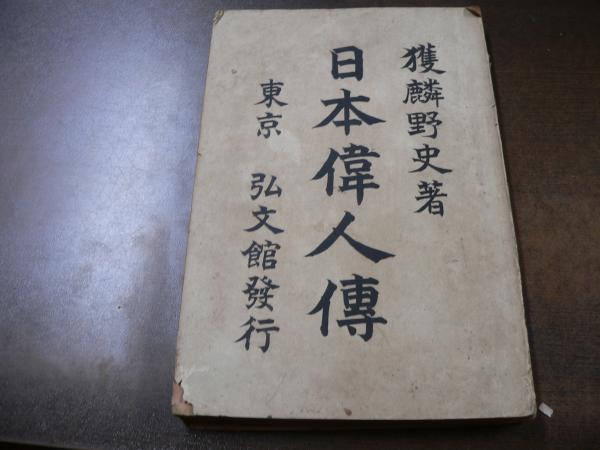 獲麟野史著
日本偉人傳
東京 弘文館發行